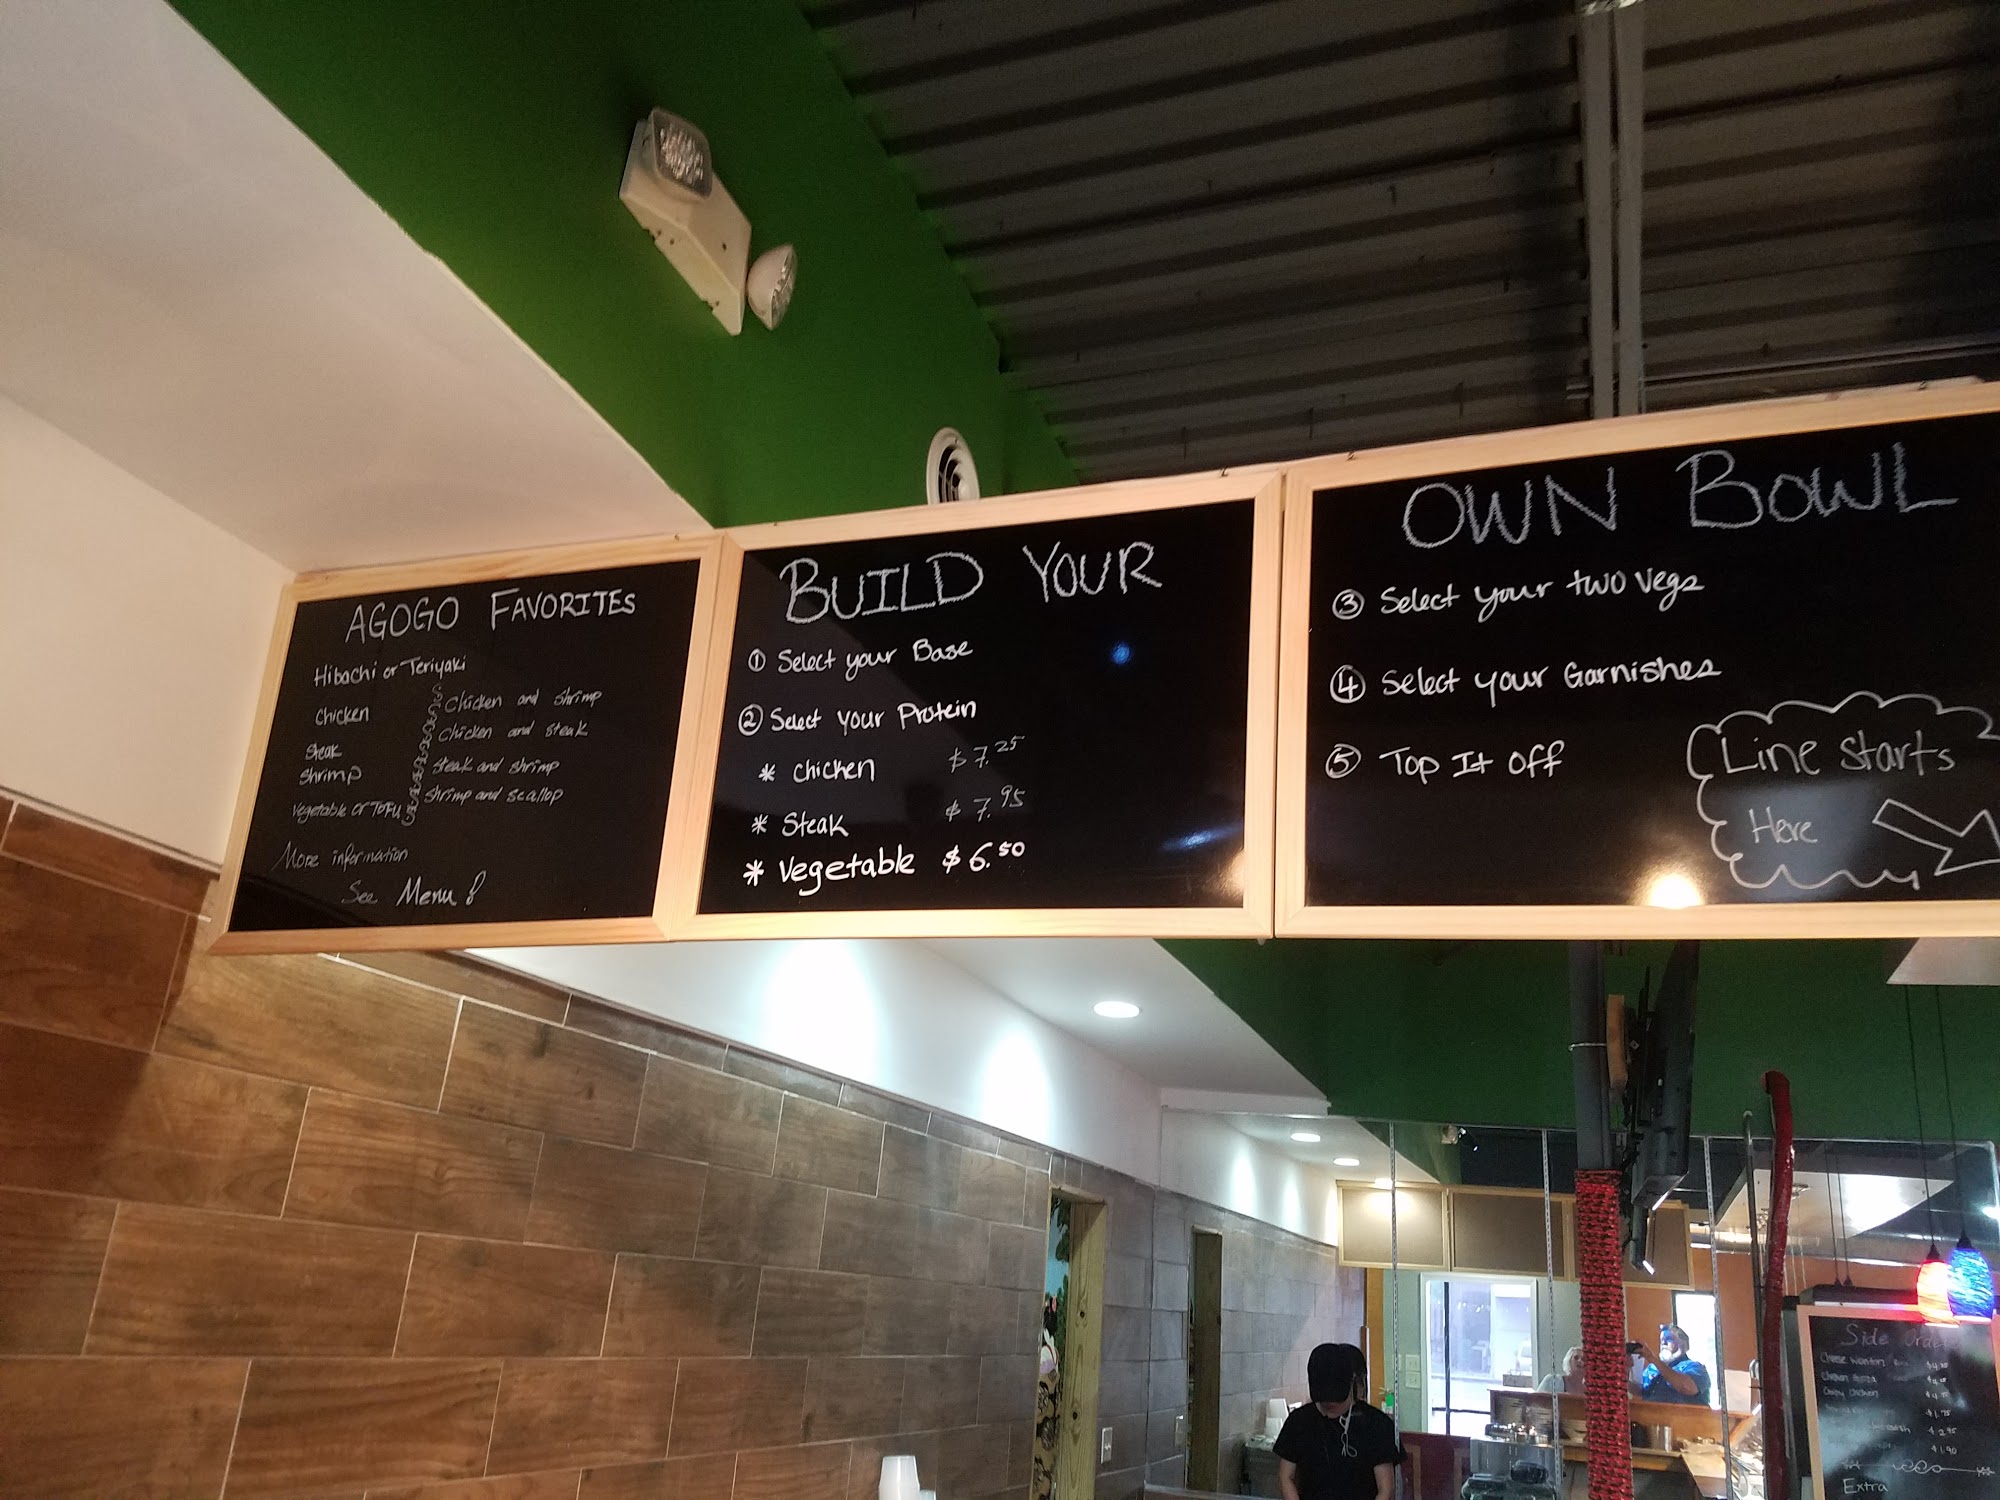 AGOGO FAVORITES
Hibachi or Teriyaki
Chicken
Steak
Shrimp
Vegetable or TOFU
Chicken and Shrimp
Chicken and steak
Steak and shrimp
Shrimp and scallop
More information
See Menu!
BUILD YOUR
① Select your Base
② Select your Protein
* Chicken $7.25
* Steak $7.95
* Vegetable $6.50
OWN BOWL
③ Select your two vegs
④ Select your Garnishes
⑤ Top It off
Line Starts
Here
Side
Cheese Wonton
Chicken
Crispy Chicken
$1.75
$2.95
$1.90
Extra